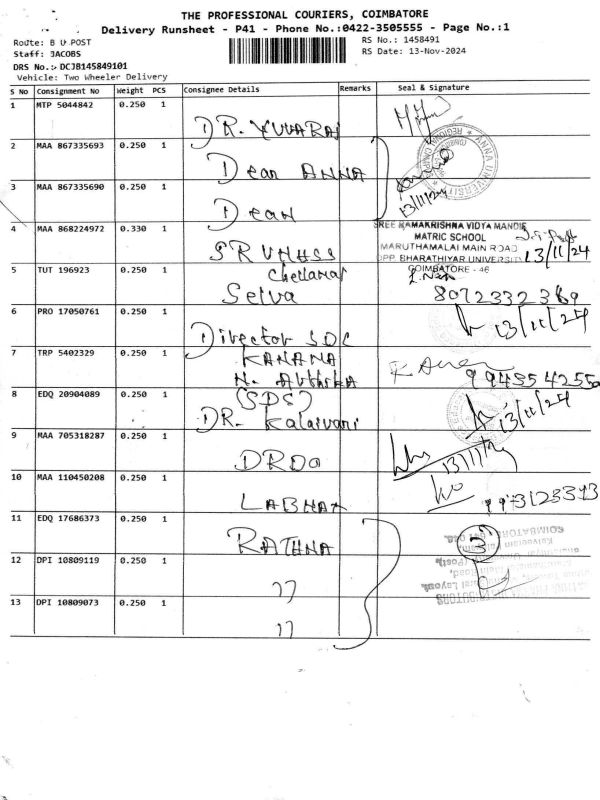 THE PROFESSIONAL COURIERS, COIMBATORE
Delivery Runsheet - P41 - Phone No.:0422-3505555 - Page No.:1
Route: B U POST
RS No.: 1458491
Staff: JACOBS
RS Date: 13-Nov-2024
DRS No.: DCJB145849101
Vehicle: Two Wheeler Delivery
S No Consignment No Weight PCS Consignee Details Remarks Seal & Signature
1 MTP 5044842 0.250 1 DR. YUVARAJ
2 MAA 867335693 0.250 1 Dean ANNA
ANNA UNIVERSITY
REGIONAL
3 MAA 867335690 0.250 1 Dean 13/11/24
4 MAA 868224972 0.330 1 SRVMHSS
SREE RAMAKRISHNA VIDYA MANDIR
MATRIC SCHOOL
MARUTHAMALAI MAIN ROAD
OPP. BHARATHIYAR UNIVERSITY 13/11/24
COIMBATORE - 46
5 TUT 196923 0.250 1 Chellamal
Selva 8072332369
6 PRO 17050761 0.250 1 Director SDC 13/11/24
7 TRP 5402329 0.250 1 KANANA
N. Authika 9943554255
8 EDQ 20904089 0.250 1 (SDS)
DR. Kalaivani 13/11/24
9 MAA 705318287 0.250 1 DRDO 13/11/24
10 MAA 110450208 0.250 1 LABHAX
11 EDQ 17686373 0.250 1 RATHNA 3
COIMBATORE
12 DPI 10809119 0.250 1 "
13 DPI 10809073 0.250 1 "